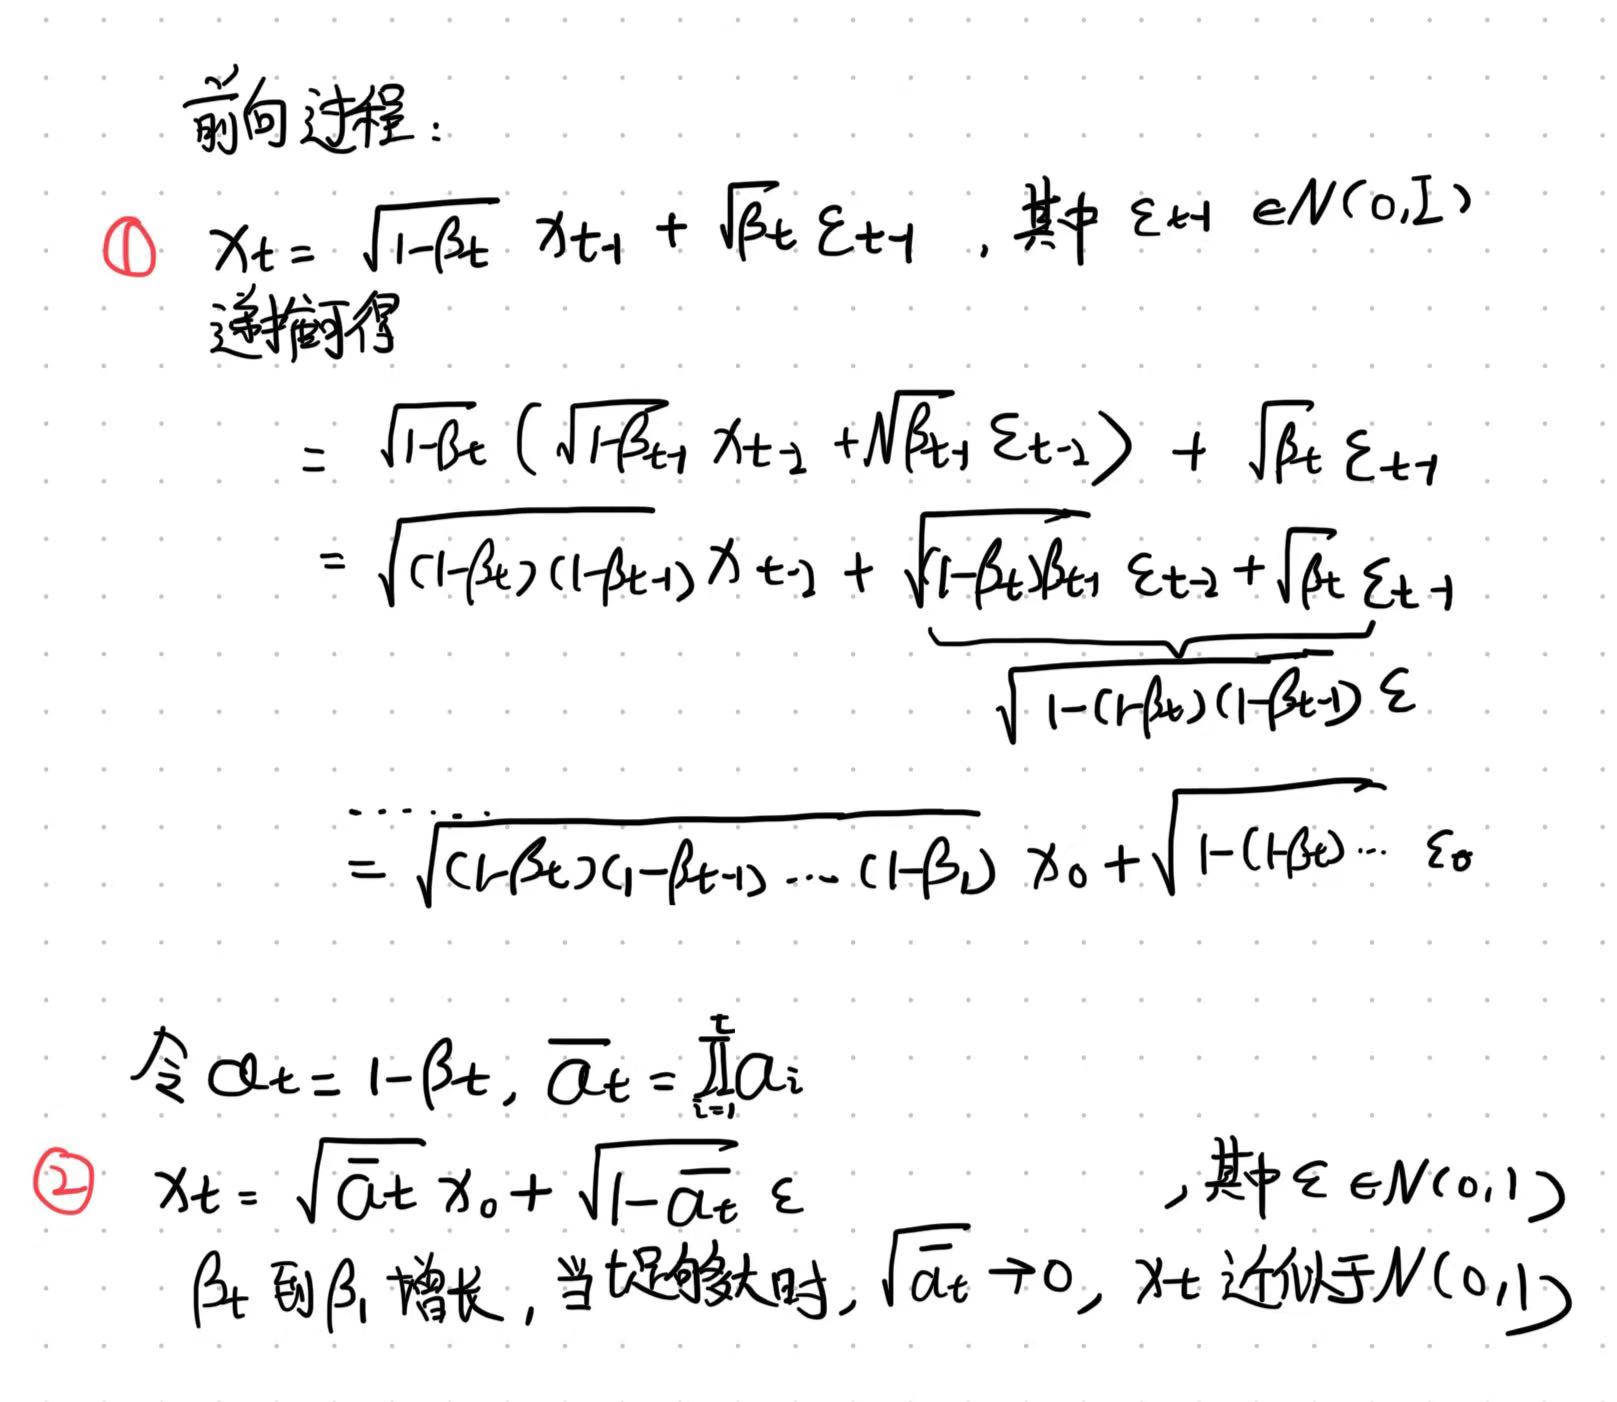 前向过程:
① xt = √(1-βt) xt-1 + √βt εt-1 , 其中 εt-1 ∈ N(0,I)
递推可得
= √(1-βt) ( √(1-βt-1) xt-2 + √βt-1 εt-2 ) + √βt εt-1
= √((1-βt)(1-βt-1)) xt-2 + √((1-βt)βt-1) εt-2 + √βt εt-1
√(1-(1-βt)(1-βt-1)) ε
.......
= √((1-βt)(1-βt-1)...(1-β1)) x0 + √(1-(1-βt)...) ε0
令 at = 1-βt, a̅t = ∏ᵗᵢ₌₁ ai
② xt = √a̅t x0 + √(1-a̅t) ε , 其中 ε ∈ N(0,1)
βt 到 β1 增长, 当t足够大时, √a̅t → 0, xt 近似于 N(0,1)